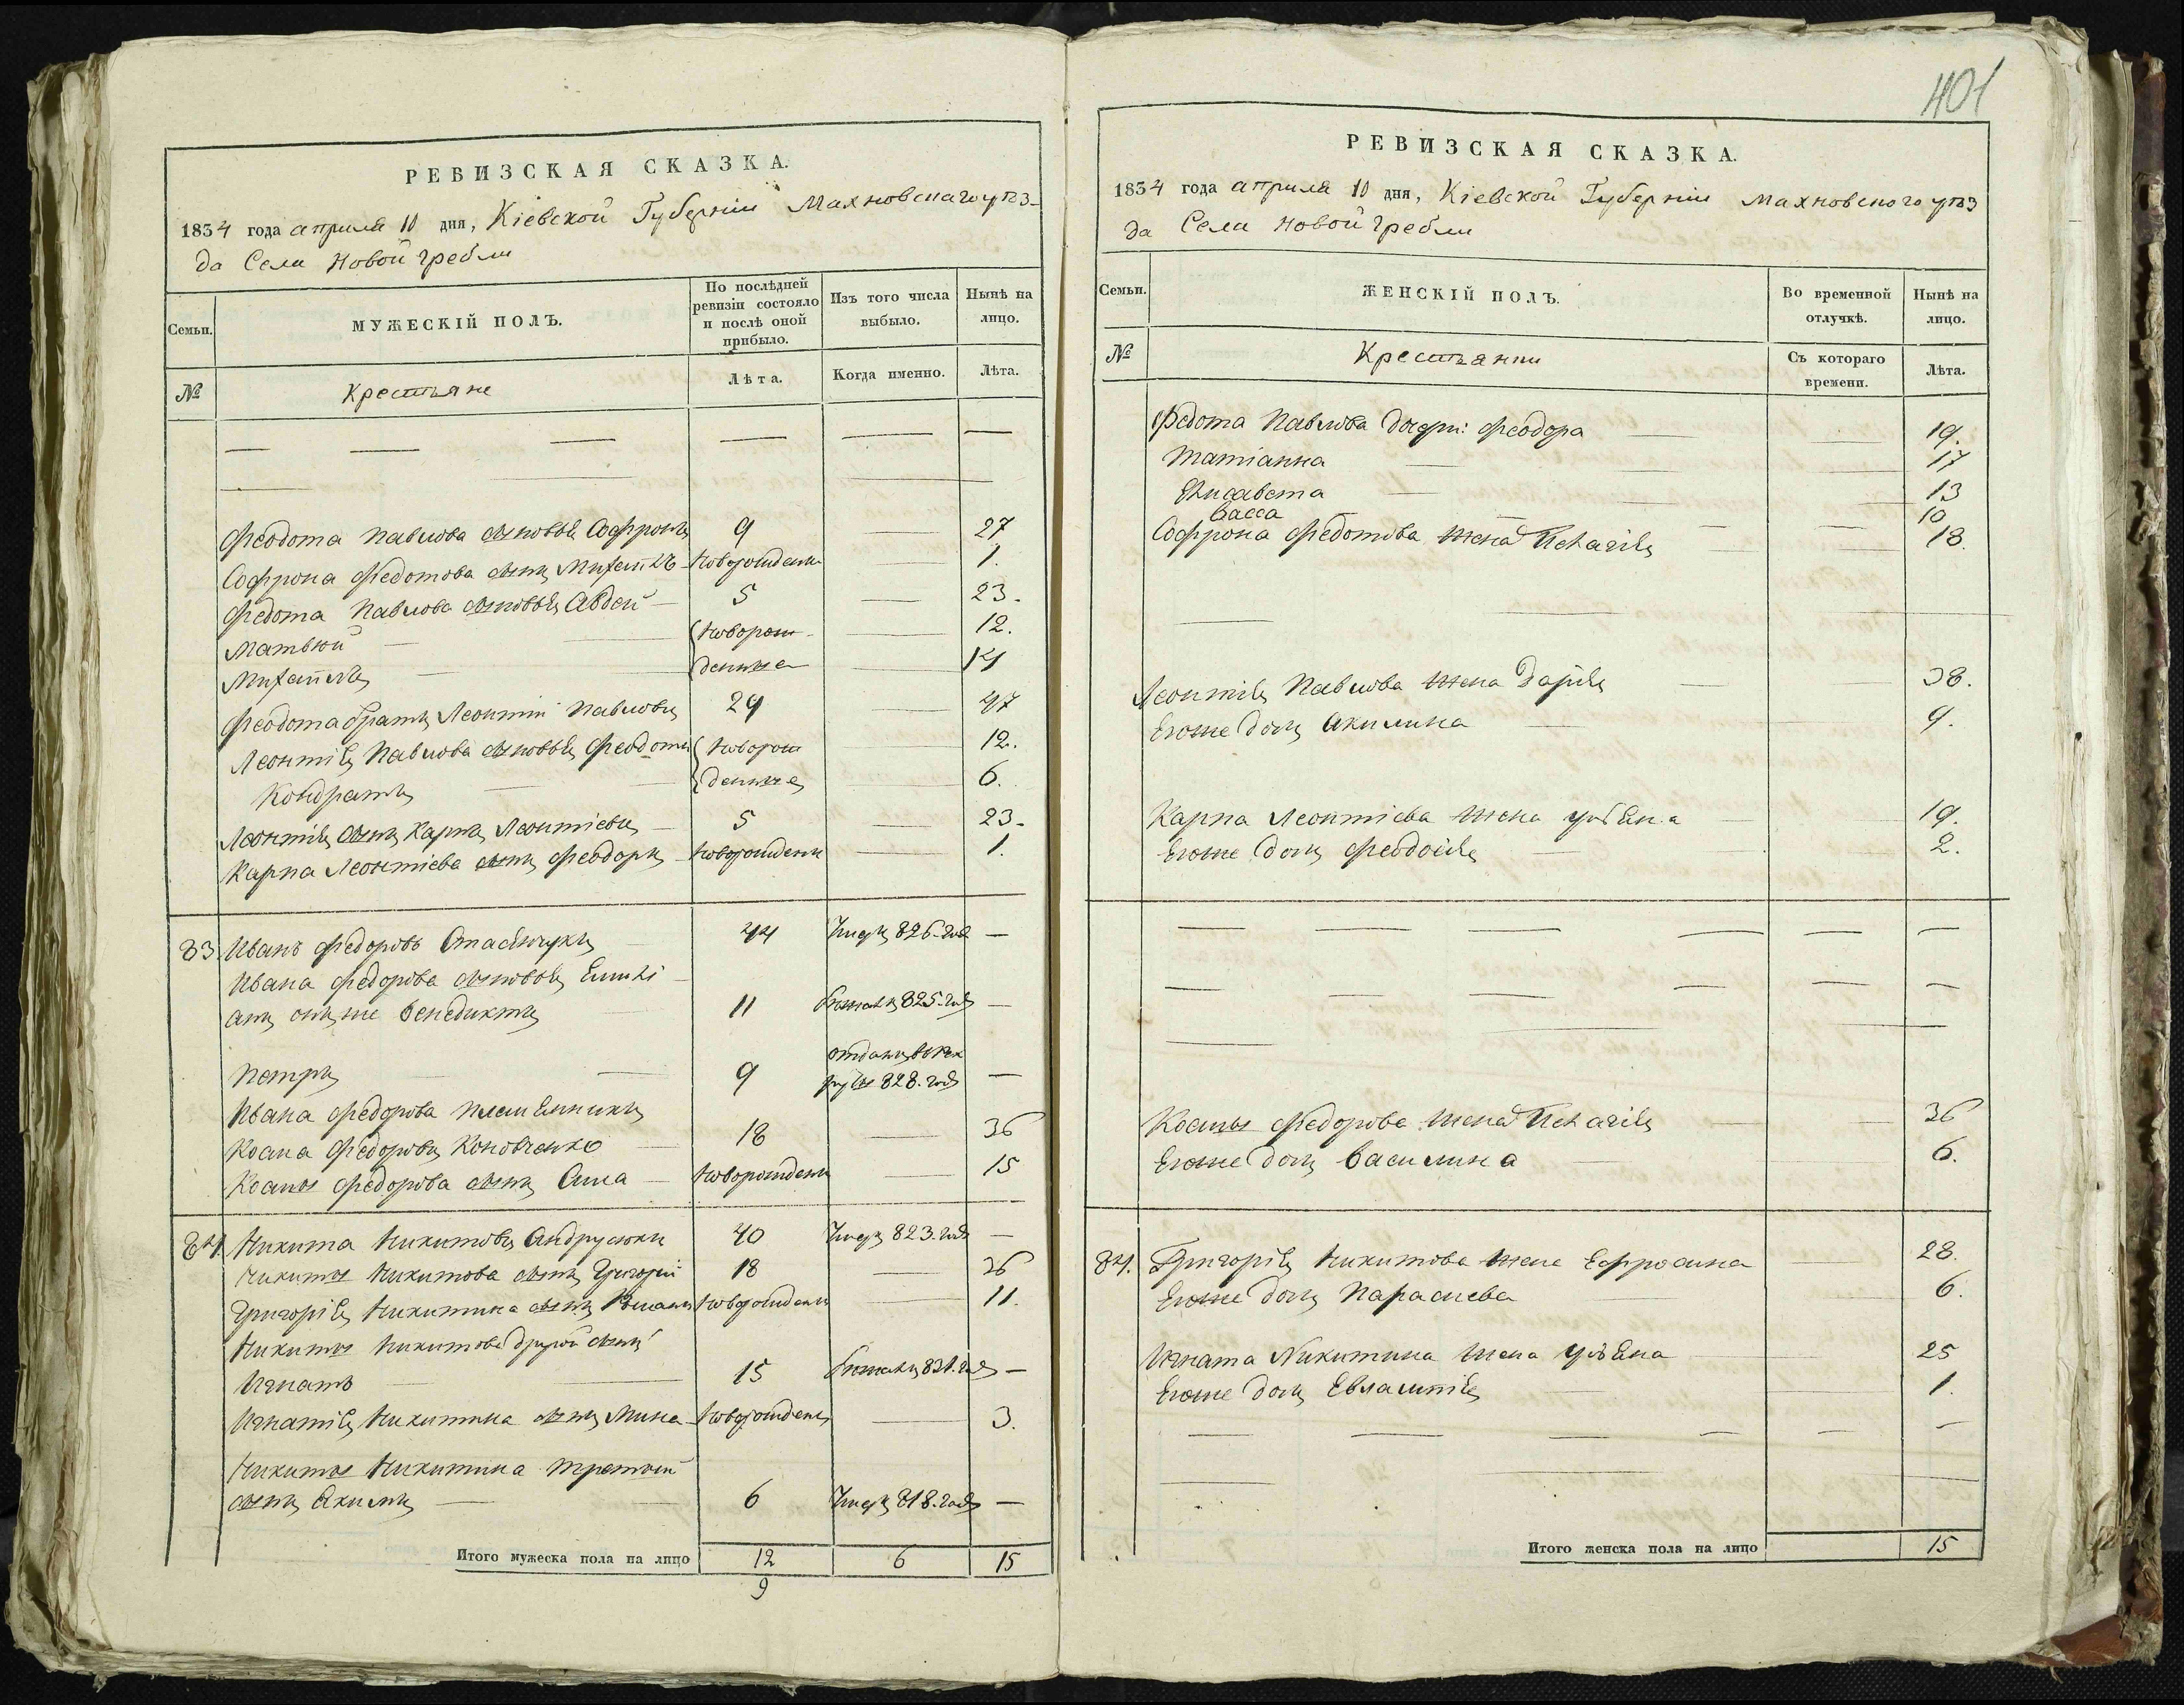 401
РЕВИЗСКАЯ СКАЗКА.
1834 года апреля 10 дня, Кіевской Губерніи Махновскаго уѣз-
да Села Новой гребли
Семьи.
МУЖЕСКІЙ ПОЛЪ.
По послѣдней ревизіи состояло и послѣ оной прибыло.
Изъ того числа выбыло.
Нынѣ на лицо.
№
Крестьяне
Лѣта.
Когда именно.
Лѣта.
Феодота Павлова сыновья Софронъ 9 — 27
Софрона Федотова сынъ Михаилъ новорожденъ — 1.
Федота Павлова сыновья Авдей — 5 — 23.
Матвѣй — новорож- — 12.
Михаилъ — денные — 14
Феодота братъ Леонтій Павловъ 29 — 47
Леонтія Павлова сыновья Феодотъ новорож — 12.
Кондратъ — денные — 6.
Леонтія сынъ Карпъ Леонтіевъ — 5 — 23.
Карпа Леонтіева сынъ Феодоръ новорожденъ — 1.
83 Иванъ Федоровъ 44 Умеръ 826. года —
Ивана Федорова сыновья
онъ же Венедиктъ 11 бежалъ 825. года —
отданъ въ рек
Петръ — 9 руты 828. года —
Ивана Федорова племянникъ
Косма Федоровъ 18 — 36
Космы Федорова сынъ новорожденъ — 15
84. Никита Никитовъ Андрусюкъ 40 Умеръ 823. года —
Никиты Никитова сынъ Григорій 18 — 36
Григорія Никитина сынъ новорожденъ — 11.
Никиты Никитова другой сынъ
Игнатъ — 15 бежалъ 831. года —
Игнатія Никитина сынъ Мина новорожденъ — 3.
Никиты Никитина третий
сынъ Якимъ — 6 Умеръ 818. года —
Итого мужеска пола на лицо 12 6 15
9
РЕВИЗСКАЯ СКАЗКА.
1834 года апреля 10 дня, Кіевской Губерніи Махновскаго уѣз
да Села Новой гребли
Семьи.
ЖЕНСКІЙ ПОЛЪ.
Во временной отлучкѣ.
Нынѣ на лицо.
№
Крестьянки
Съ котораго времени.
Лѣта.
Федота Павлова дочери: Феодора — 19.
Татіанна — 17
Елисавета — 13
Васса — 10
Софрона Федотова жена Пелагія — 18.
Леонтія Павлова жена Дарія — 38.
Егоже дочь Акилина — 9.
Карпа Леонтіева жена Уліяна — 19.
Егоже дочь Феодосія — 2.
Космы Федорова жена Пелагія — 36
Егоже дочь Василина — 6.
84. Григорія Никитова жена Евфросина — 28.
Егоже дочь Параскева — 6.
Игната Никитина жена Уліяна — 25
Егоже дочь Евлампія — 1.
Итого женска пола на лицо 15